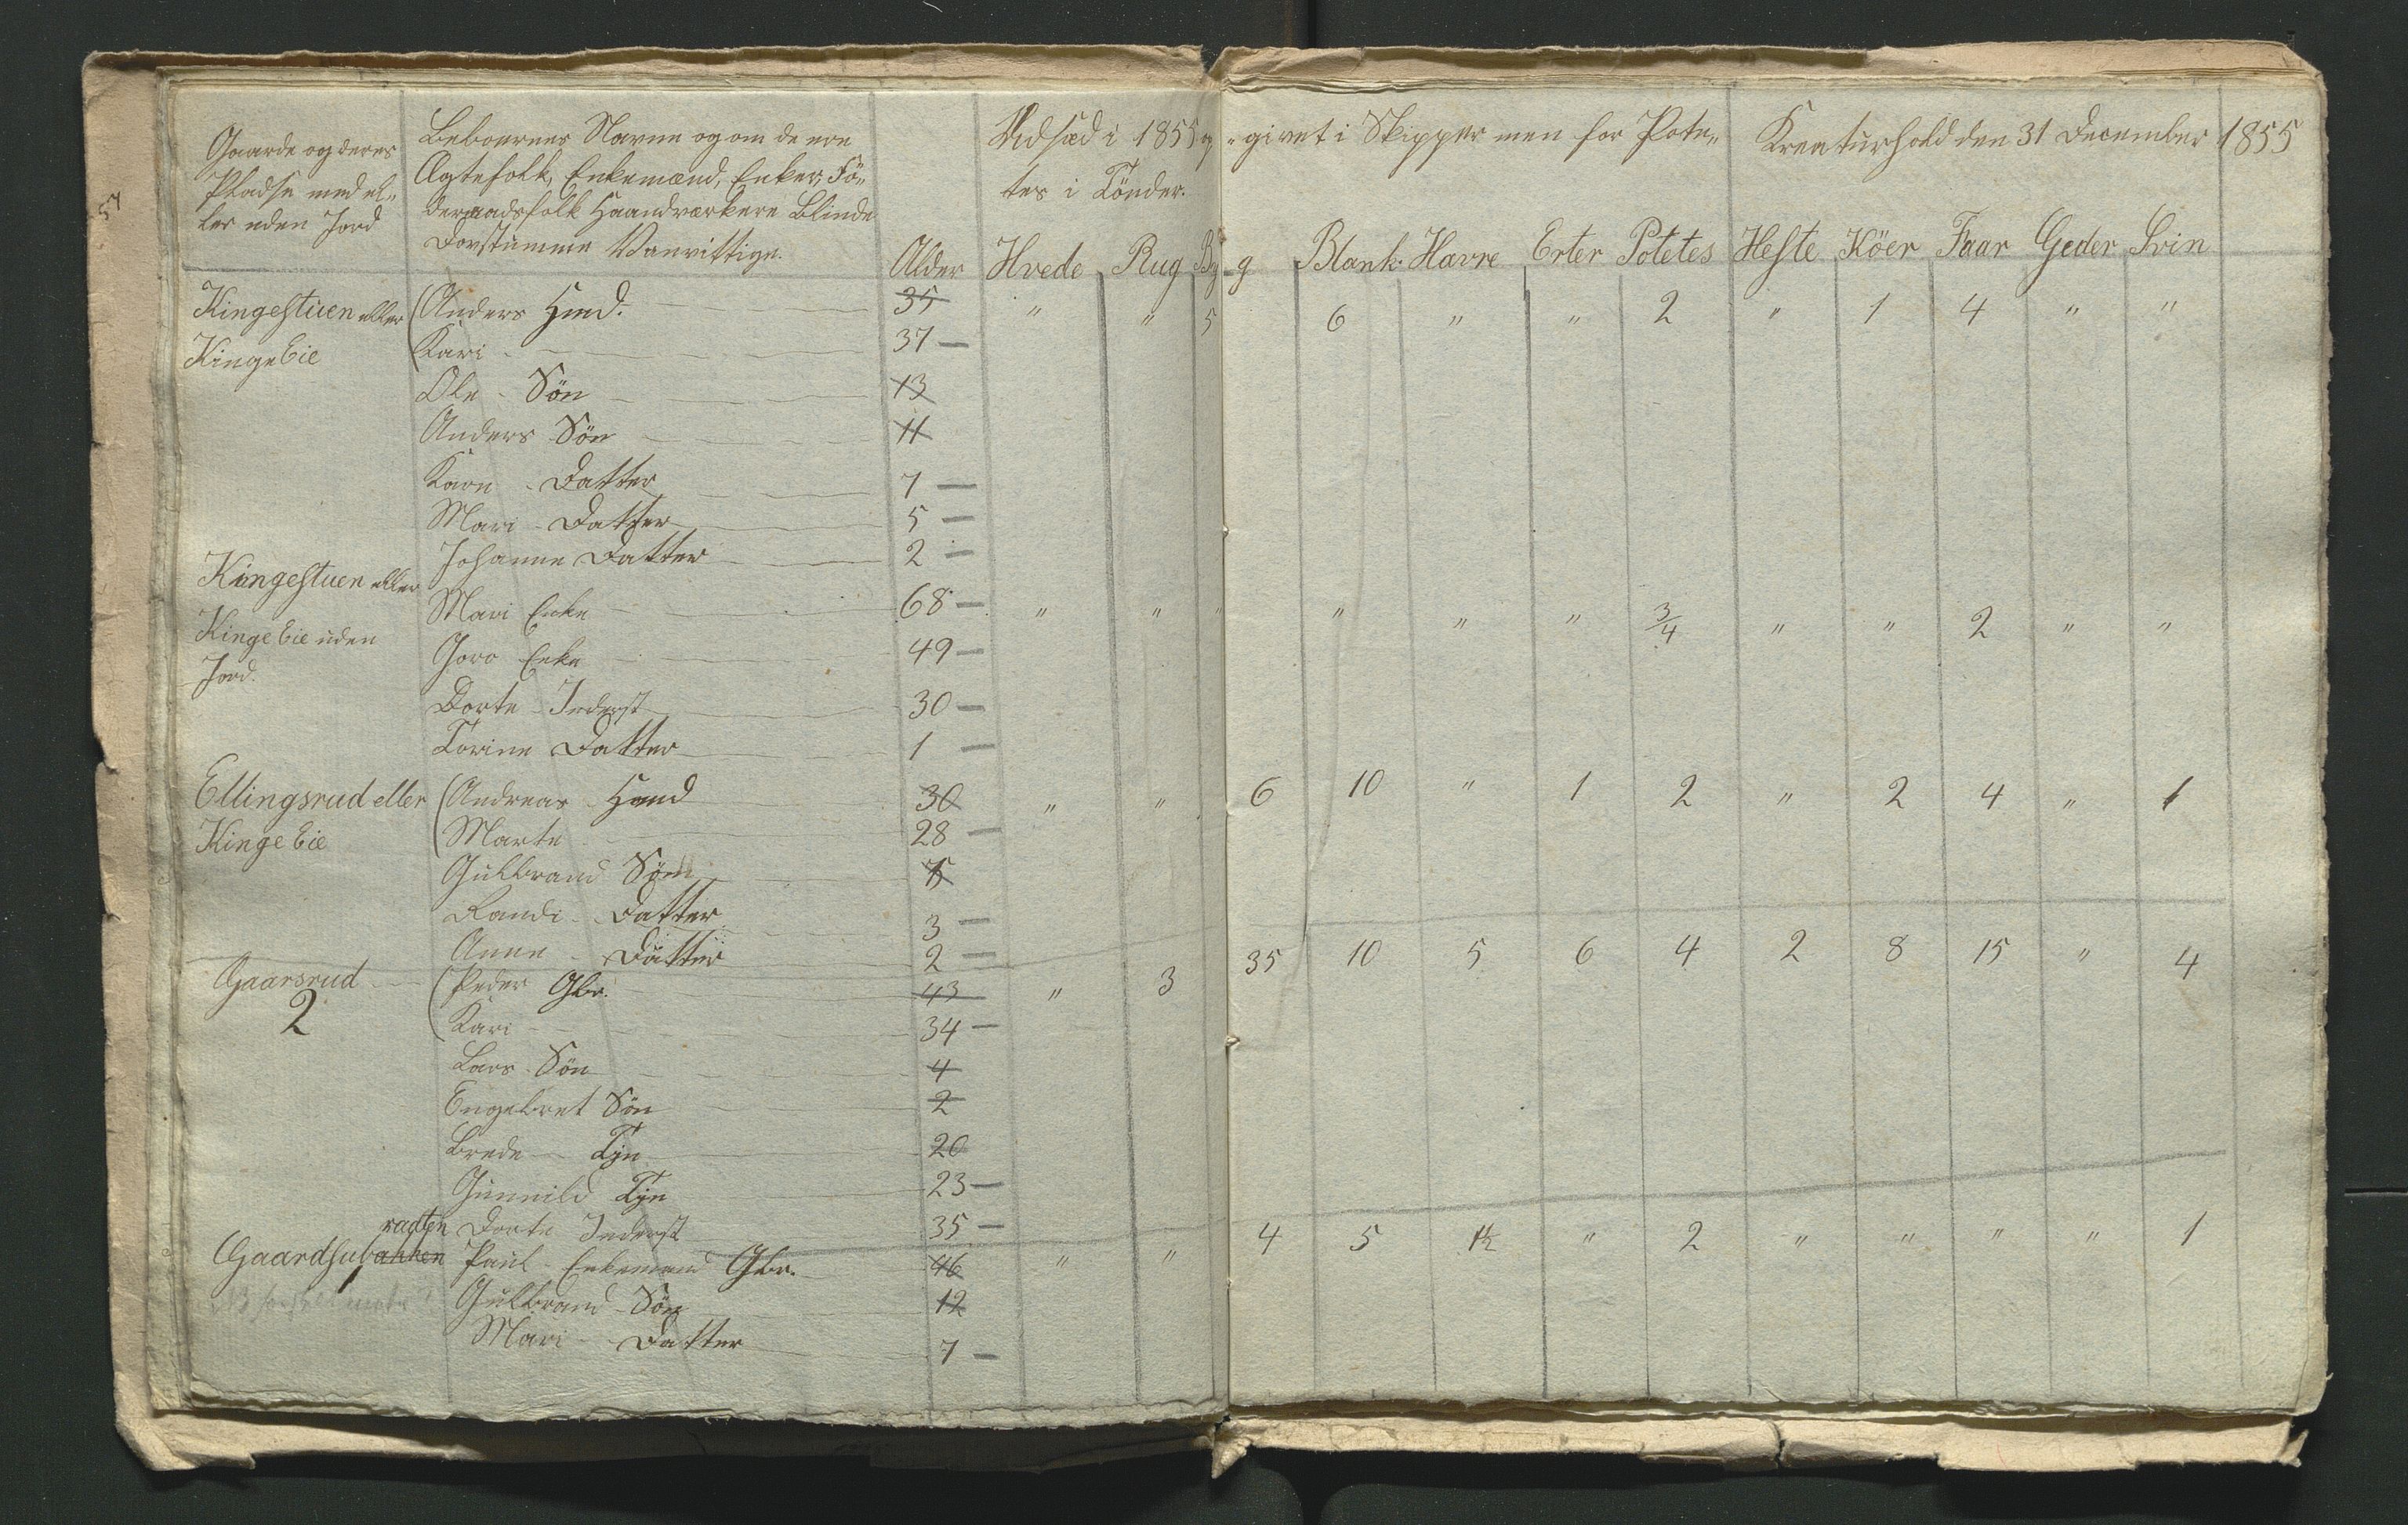 Gaarde og deres Beboernes Navne og om de ere Udsæd i 1855 op„ „givet i Skipper men for Pote„ Kreaturhold den 31 December 1855
Pladse med el„ Ægtefolk, Enkemænd, Enker, Fö„ tes i Tönder.
ler uden Jord deraadsfolk Haandværkere Blinde
Dovstumme Vanvittige. Alder Hvede Rug By„g Blank. Havre Erter Potetes Heste Köer Faar Geder Svin
5
Kingestuen eller (Anders Hmd. 35 " " 5 6 " " 2 " 1 4 " "
Kinge Eie (Kari 37 —
Ole - Sön 13
Anders Sön 11
Karn - Datter 7 —
Mari - Datter 5 —
Johanne Datter 2 —
Kingestuen eller Mari Enke 68 — " " " " " " 3/4 " " 2 " "
Kinge Eie uden Goro Enke 49 —
Jord. Dorte - Inderst 30 —
Torine Datter 1 —
Ellingsrud eller (Andreas - Hmd 30 " " 6 10 " 1 2 " 2 4 " 1
Kinge Eie (Marte 28 —
Gulbrand Sön
Randi - Datter 3 —
Anne - Datter 2 —
Gaarsrud (Peder Gbr. 43 " 3 35 10 5 6 4 2 8 15 " 4
2 (Kari 34 —
Lars - Sön 4
Engebret Sön 2
Brede - Tjn 20
Gunnild Tjn 23 —
Dorte Inderst 35 —
ragten
Gaardsubakken Paul - Enkemand Gbr. 46 " " 4 5 1½ " 2 " " " " 1
Gulbrand - Sön 12
Mari - Datter 7 —